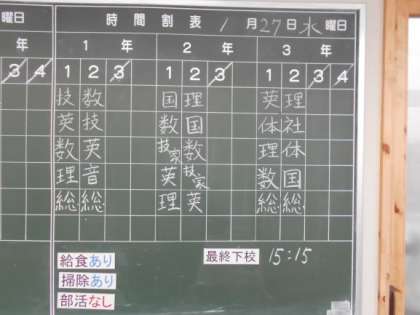 曜日 時間割表 1月27日水曜日
年 1年 2年 3年
3 4 1 2 3 1 2 3 1 2 3 4
技 数 国 理 英 理
英 技 数 国 体 社
数 英 技家 数 理 体
理 音 英 技家 数 国
総 総 理 英 総 総
給食あり 最終下校 15:15
掃除あり
部活なし